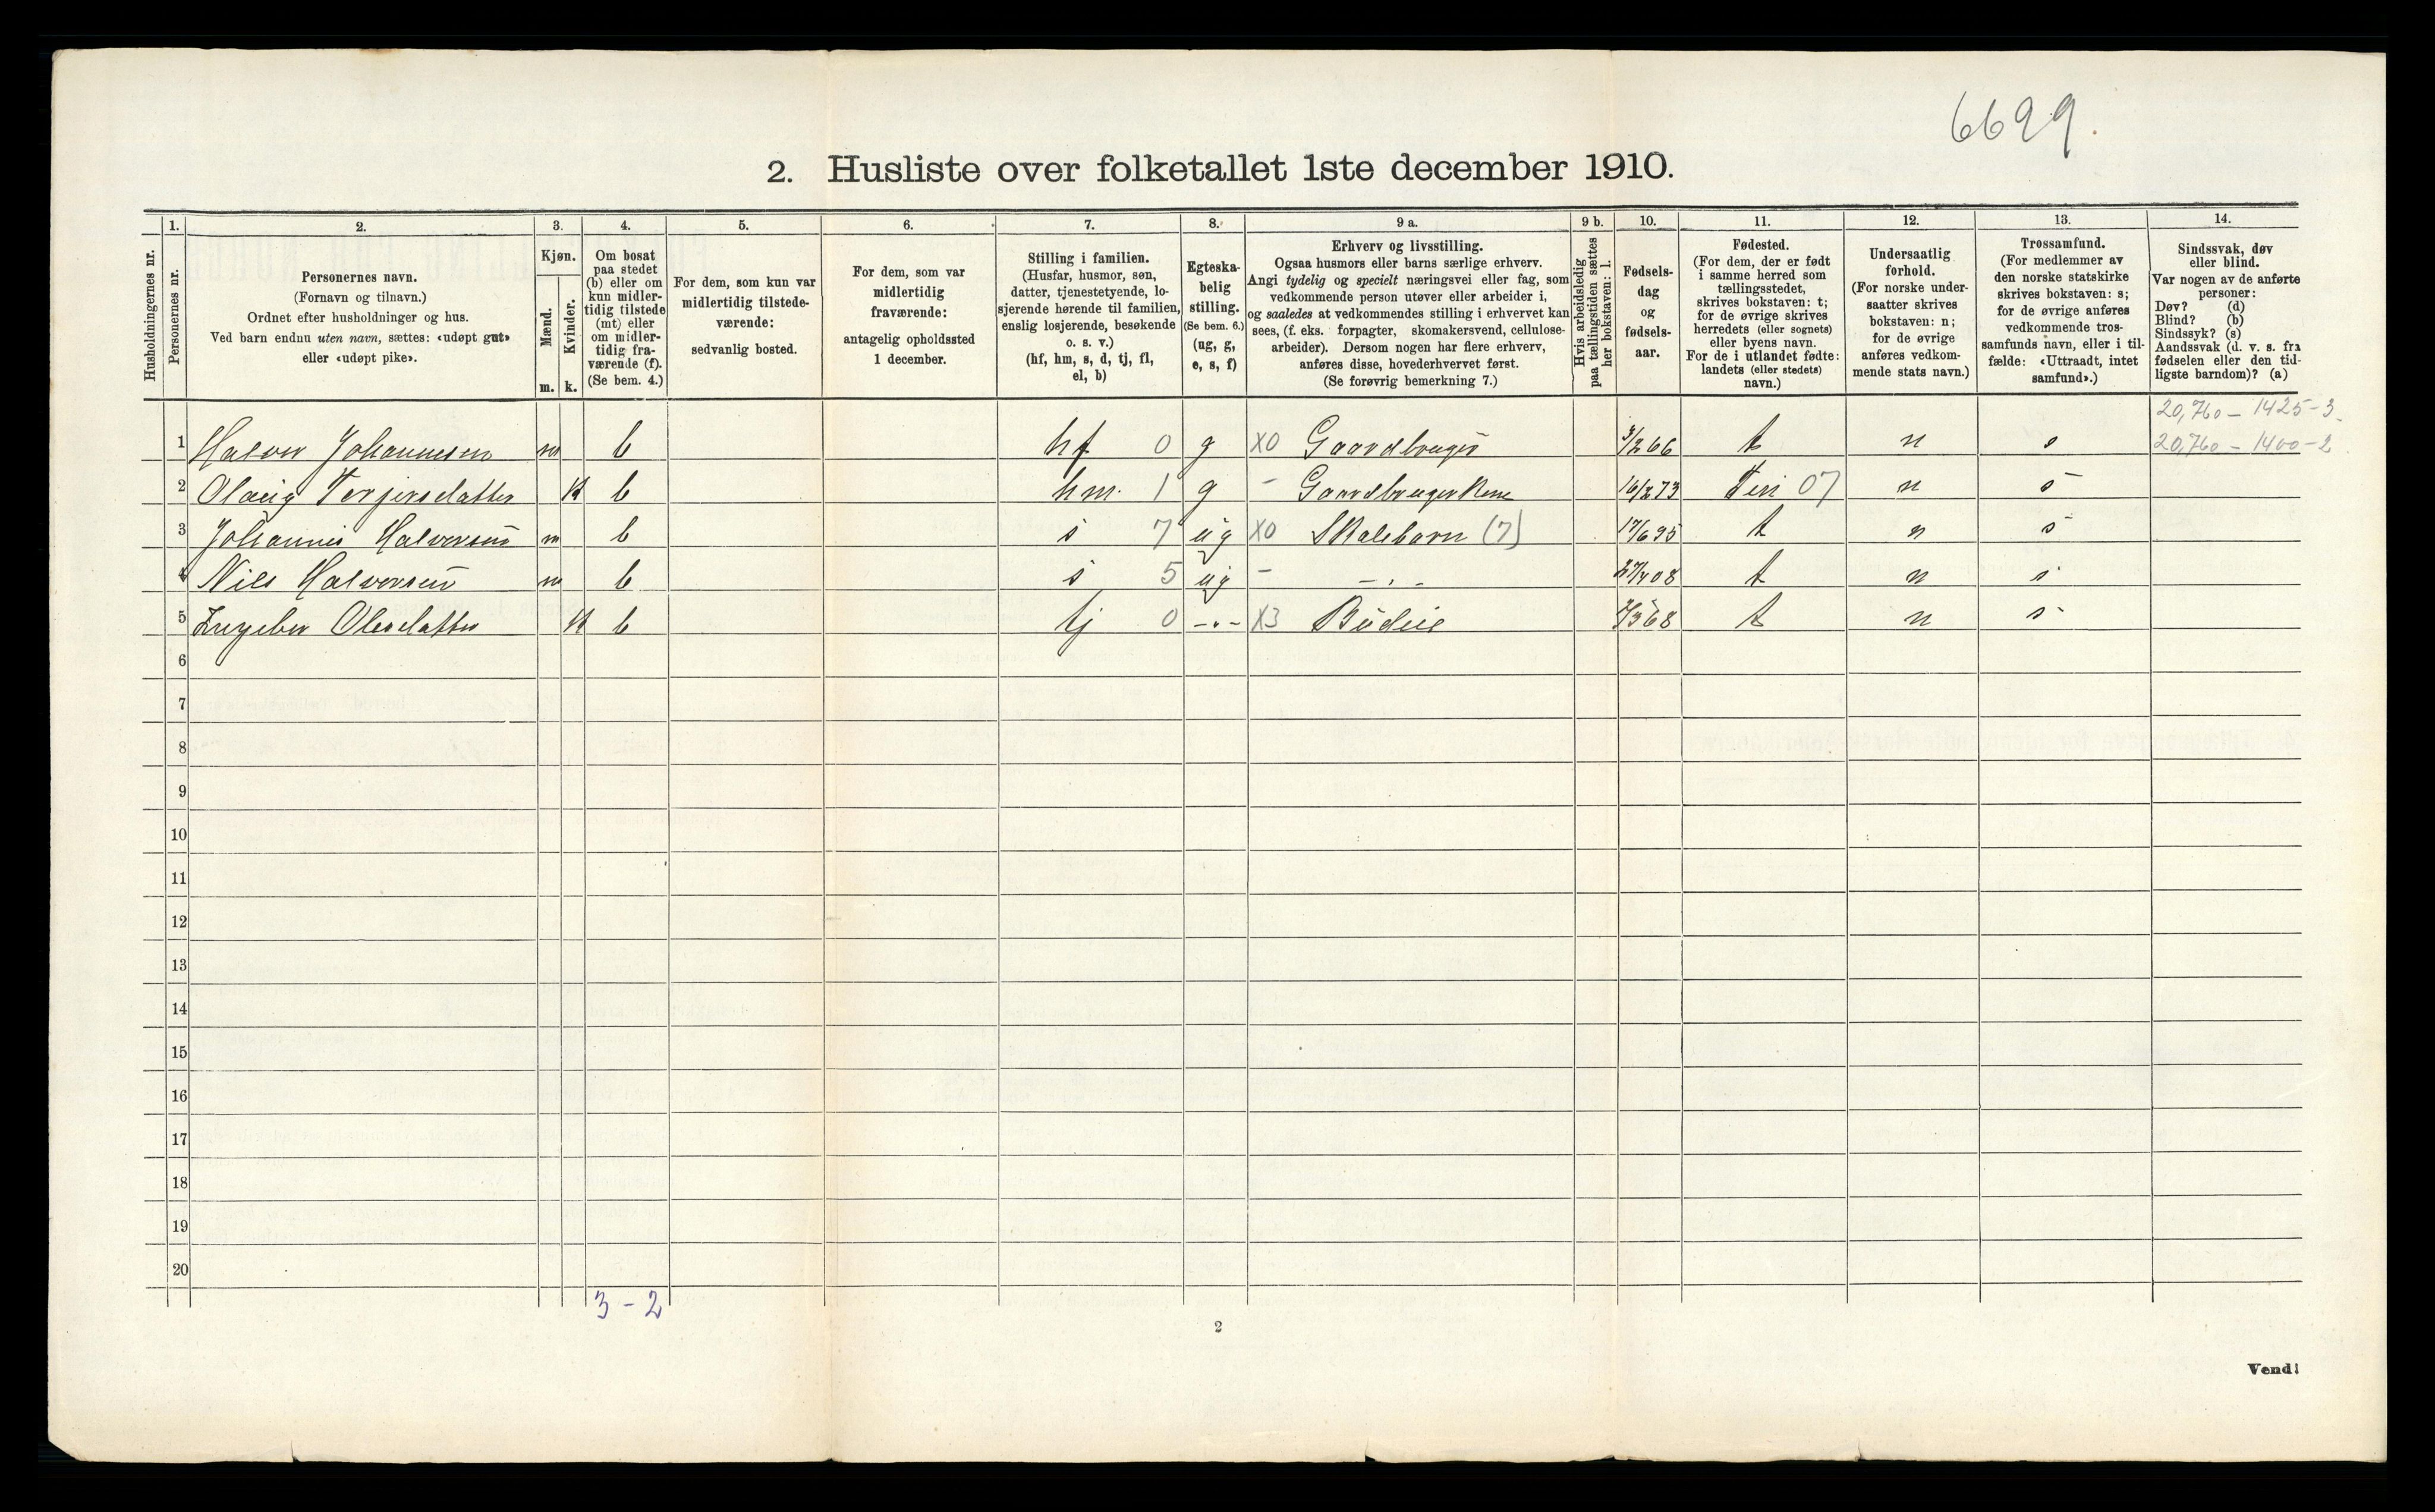 6699.
2. Husliste over folketallet 1ste december 1910.
Husholdningernes nr.
1.
Personernes nr.
2.
Personernes navn.
(Fornavn og tilnavn.)
Ordnet efter husholdninger og hus.
Ved barn endnu uten navn, sættes: «udøpt gut»
eller «udøpt pike».
3.
Kjøn.
Mænd.
Kvinder.
m. k.
4.
Om bosat
paa stedet
(b) eller om
kun midler-
tidig tilstede
(mt) eller
om midler-
tidig fra-
værende (f).
(Se bem. 4.)
5.
For dem, som kun var
midlertidig tilstede-
værende:
sedvanlig bosted.
6.
For dem, som var
midlertidig
fraværende:
antagelig opholdssted
1 december.
7.
Stilling i familien.
(Husfar, husmor, søn,
datter, tjenestetyende, lo-
sjerende hørende til familien,
enslig losjerende, besøkende
o. s. v.)
(hf, hm, s, d, tj, fl,
el, b)
8.
Egteska-
belig
stilling.
(Se bem. 6.)
(ug, g,
e, s, f)
9 a.
Erhverv og livsstilling.
Ogsaa husmors eller barns særlige erhverv.
Angi tydelig og specielt næringsvei eller fag, som
vedkommende person utøver eller arbeider i,
og saaledes at vedkommendes stilling i erhvervet kan
sees, (f. eks. forpagter, skomakersvend, cellulose-
arbeider). Dersom nogen har flere erhverv,
anføres disse, hovederhvervet først.
(Se forøvrig bemerkning 7.)
9 b.
Hvis arbeidsledig
paa tællingstiden sættes
her bokstaven: l.
10.
Fødsels-
dag
og
fødsels-
aar.
11.
Fødested.
(For dem, der er født
i samme herred som
tællingsstedet,
skrives bokstaven: t;
for de øvrige skrives
herredets (eller sognets)
eller byens navn.
For de i utlandet fødte:
landets (eller stedets)
navn.)
12.
Undersaatlig
forhold.
(For norske under-
saatter skrives
bokstaven: n;
for de øvrige
anføres vedkom-
mende stats navn.)
13.
Trossamfund.
(For medlemmer av
den norske statskirke
skrives bokstaven: s;
for de øvrige anføres
vedkommende tros-
samfunds navn, eller i til-
fælde: «Uttraadt, intet
samfund».)
14.
Sindssvak, døv
eller blind.
Var nogen av de anførte
personer:
Døv? (d)
Blind? (b)
Sindssyk? (s)
Aandssvak (d. v. s. fra
fødselen eller den tid-
ligste barndom)? (a)
20,760 – 1425-3.
1 Halvor Johannesen m b hf 0 g X0 Gaardbruger 3/2 66 t n s 20,760 – 1400-2
2 Olaug Terjersdatter k b hm. 1 g - Gaardbrugerkone 16/2 73 07 n s
3 Johannes Halvorsen m b s 7 ug X0 Skolebarn (7) 17/6 95 t n s
4 Nils Halvorsen m b s 5 ug - -.- t n s
5 Olesdatter k b tj 0 -.- X3 Budeie t n s
6
7
8
9
10
11
12
13
14
15
16
17
18
19
20
3 - 2
2
Vend!